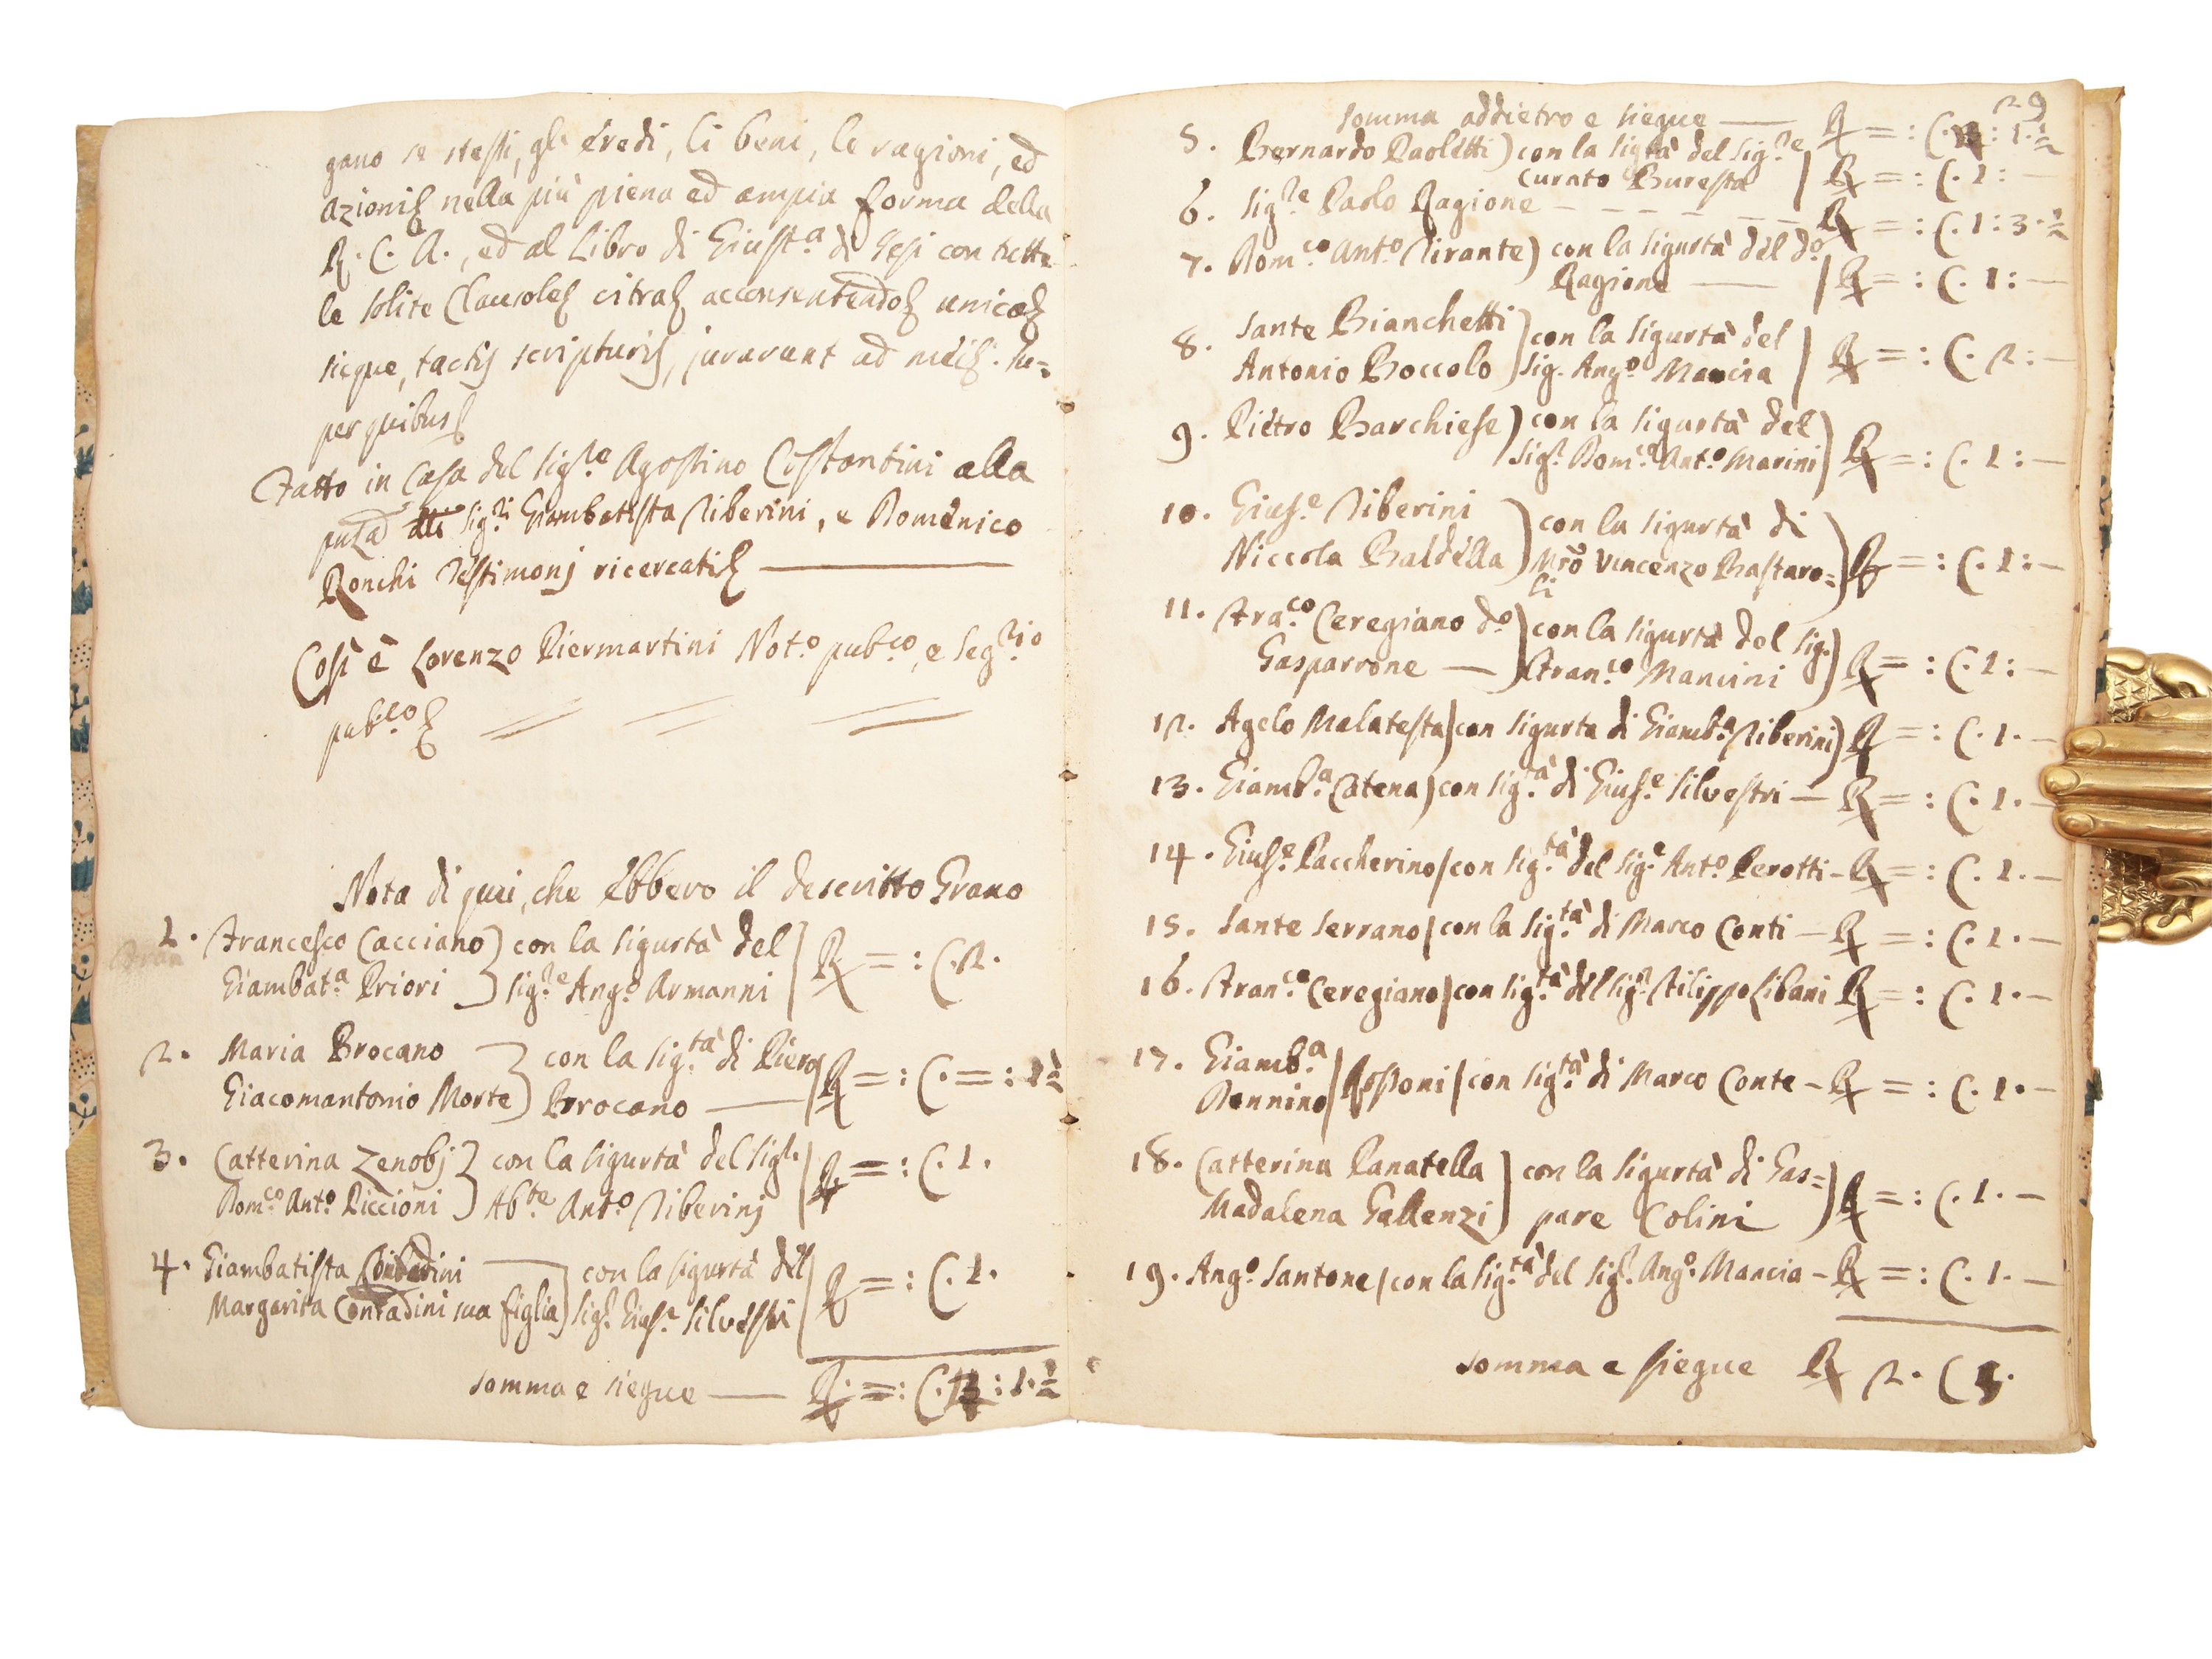 gano se stessi, gli Eredi, li beni, le ragioni, ed
azioni nella più piena ed ampia forma della
R. C. A., ed al Libro di Giust.a di Jesi con tutte
le solite Clausole citra acconsentendo unica
sicque, tactis scripturis, jurarunt ad
per quibus
Fatto in Casa del Sig.re Agostino Costantini alla
Sig.ri Giambatista Tiberini, e Domenico
Ronchi Testimonj ricercati
Così è Lorenzo Piermartini Not.o pub.co, e Seg.rio
pub.co
Nota di quei, che Ebbero il descritto Grano
1. Francesco Cacciano) con la sigurtà del
Giambat.a Priori) Sig.re Ang.o Armanni | R =: C.2.
2. Maria Brocano
Giacomantonio Morte) con la sig.tà di Piero
Brocano — R =: C. =: 1½
3. Catterina Zenobj) con la sigurtà del Sig.re
Dom.co Ant.o Piccioni) Ab.te Ant.o Tiberinj | R =: C. 1.
4. Giambatista Contadini — con la sigurtà del
Margarita Contadini sua figlia) Sig.r Gius.e Silvestri | R =: C. 1.
somma e siegue — R. =: C. : 1.½
29
somma addietro e siegue — R =: C. : 1.½
5. Bernardo Paoletti) con la sigtà del Sig.re
Curato Buresta | R =: C. 1: —
6. Sig.re Paolo Ragione — — — R =: C. 1: 3.½
7. Dom.co Ant.o Tirante) con la sigurtà del d.o
Ragione — | R =: C. 1: —
8. Sante Bianchetti) con la sigurtà del
Antonio Boccolo) Sig. Ang.o Mancia | R =: C. 2: —
9. Pietro Barchiese) con la sigurtà del
Sig.r Dom.co Ant.o Marini) R =: C. 1: —
10. Gius.e Tiberini
Niccola Baldella) con la sigurtà di
Mrõ Vincenzo Bastaro=
li) R =: C. 1: —
11. Fra.co Ceregiano d.o) con la sigurtà del Sig.)
Gasparrone —) Fran.co Mancini) R =: C. 1: —
12. Agelo Malatesta) con sigurta di Giamb.a Tiberini) R =: C. 1. —
13. Giamb.a Catena) con sig.tà di Gius.e Silvestri — R =: C. 1. —
14. Gius.e Paccherino) con sig.tà del Sig.e Ant.o Perotti — R =: C. 1. —
15. Sante Serrano) con la sig.tà di Marco Conti — R =: C. 1. —
16. Fran.co Ceregiano) con sig.tà del sig.r Filippo Libani R =: C. 1. —
17. Giamb.a
Dennino) Rossoni) con sig.tà di Marco Conte — R =: C. 1. —
18. Catterina Panatella) con la sigurtà di Gas=
Madalena Gallenzi) pare Colini) R =: C. 1. —
19. Ang.o Santone) con la sig.tà del sig.r Ang.o Mancia — R =: C. 1. —
somma e siegue R 2. C